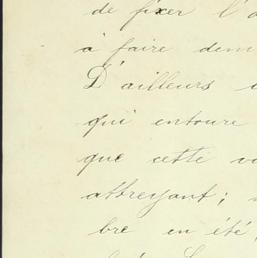 de fixer l'a
à faire dem
D'ailleurs
qui entoure
que cette vo
attrayant;
bre en été,